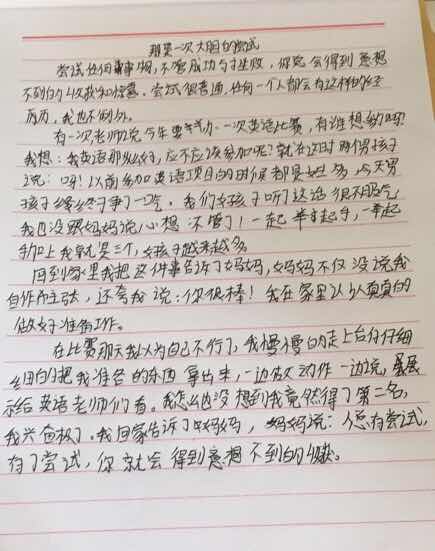 那是一次大胆的尝试
尝试任何事物,不管成功与失败,你总会得到意想
不到的收获和惊喜。尝试很普通,任何一个人都会有这样的经
历,我也不例外。
有一次,老师说今年要举办一次英语比赛,有谁想参加吗?
我想:我英语那么好,应不应该参加呢?就在这时两个男孩子
说:呀!以前参加英语项目的时候都是女生多,今天男
孩子终于争了一口气。我们女孩子听了这话很不服气
我也没跟妈妈说,心想不管了!一起举起手,一举起
手加上我就是三个,女孩子越来越多
回到家里我把这件事告诉了妈妈,妈妈不仅没说我
自作主张,还夸我说:你很棒!我在家里认认真真的
做好准备工作。
在比赛那天我以为自己不行了,我慢慢的走上台仔仔细
细的把我准备的东西拿出来,一边做动作一边说,展
示给英语老师们看。我怎么也没想到我竟然得了第二名,
我兴奋极了。我回家告诉了妈妈,妈妈说:人总有尝试,
有了尝试,你就会得到意想不到的收获。